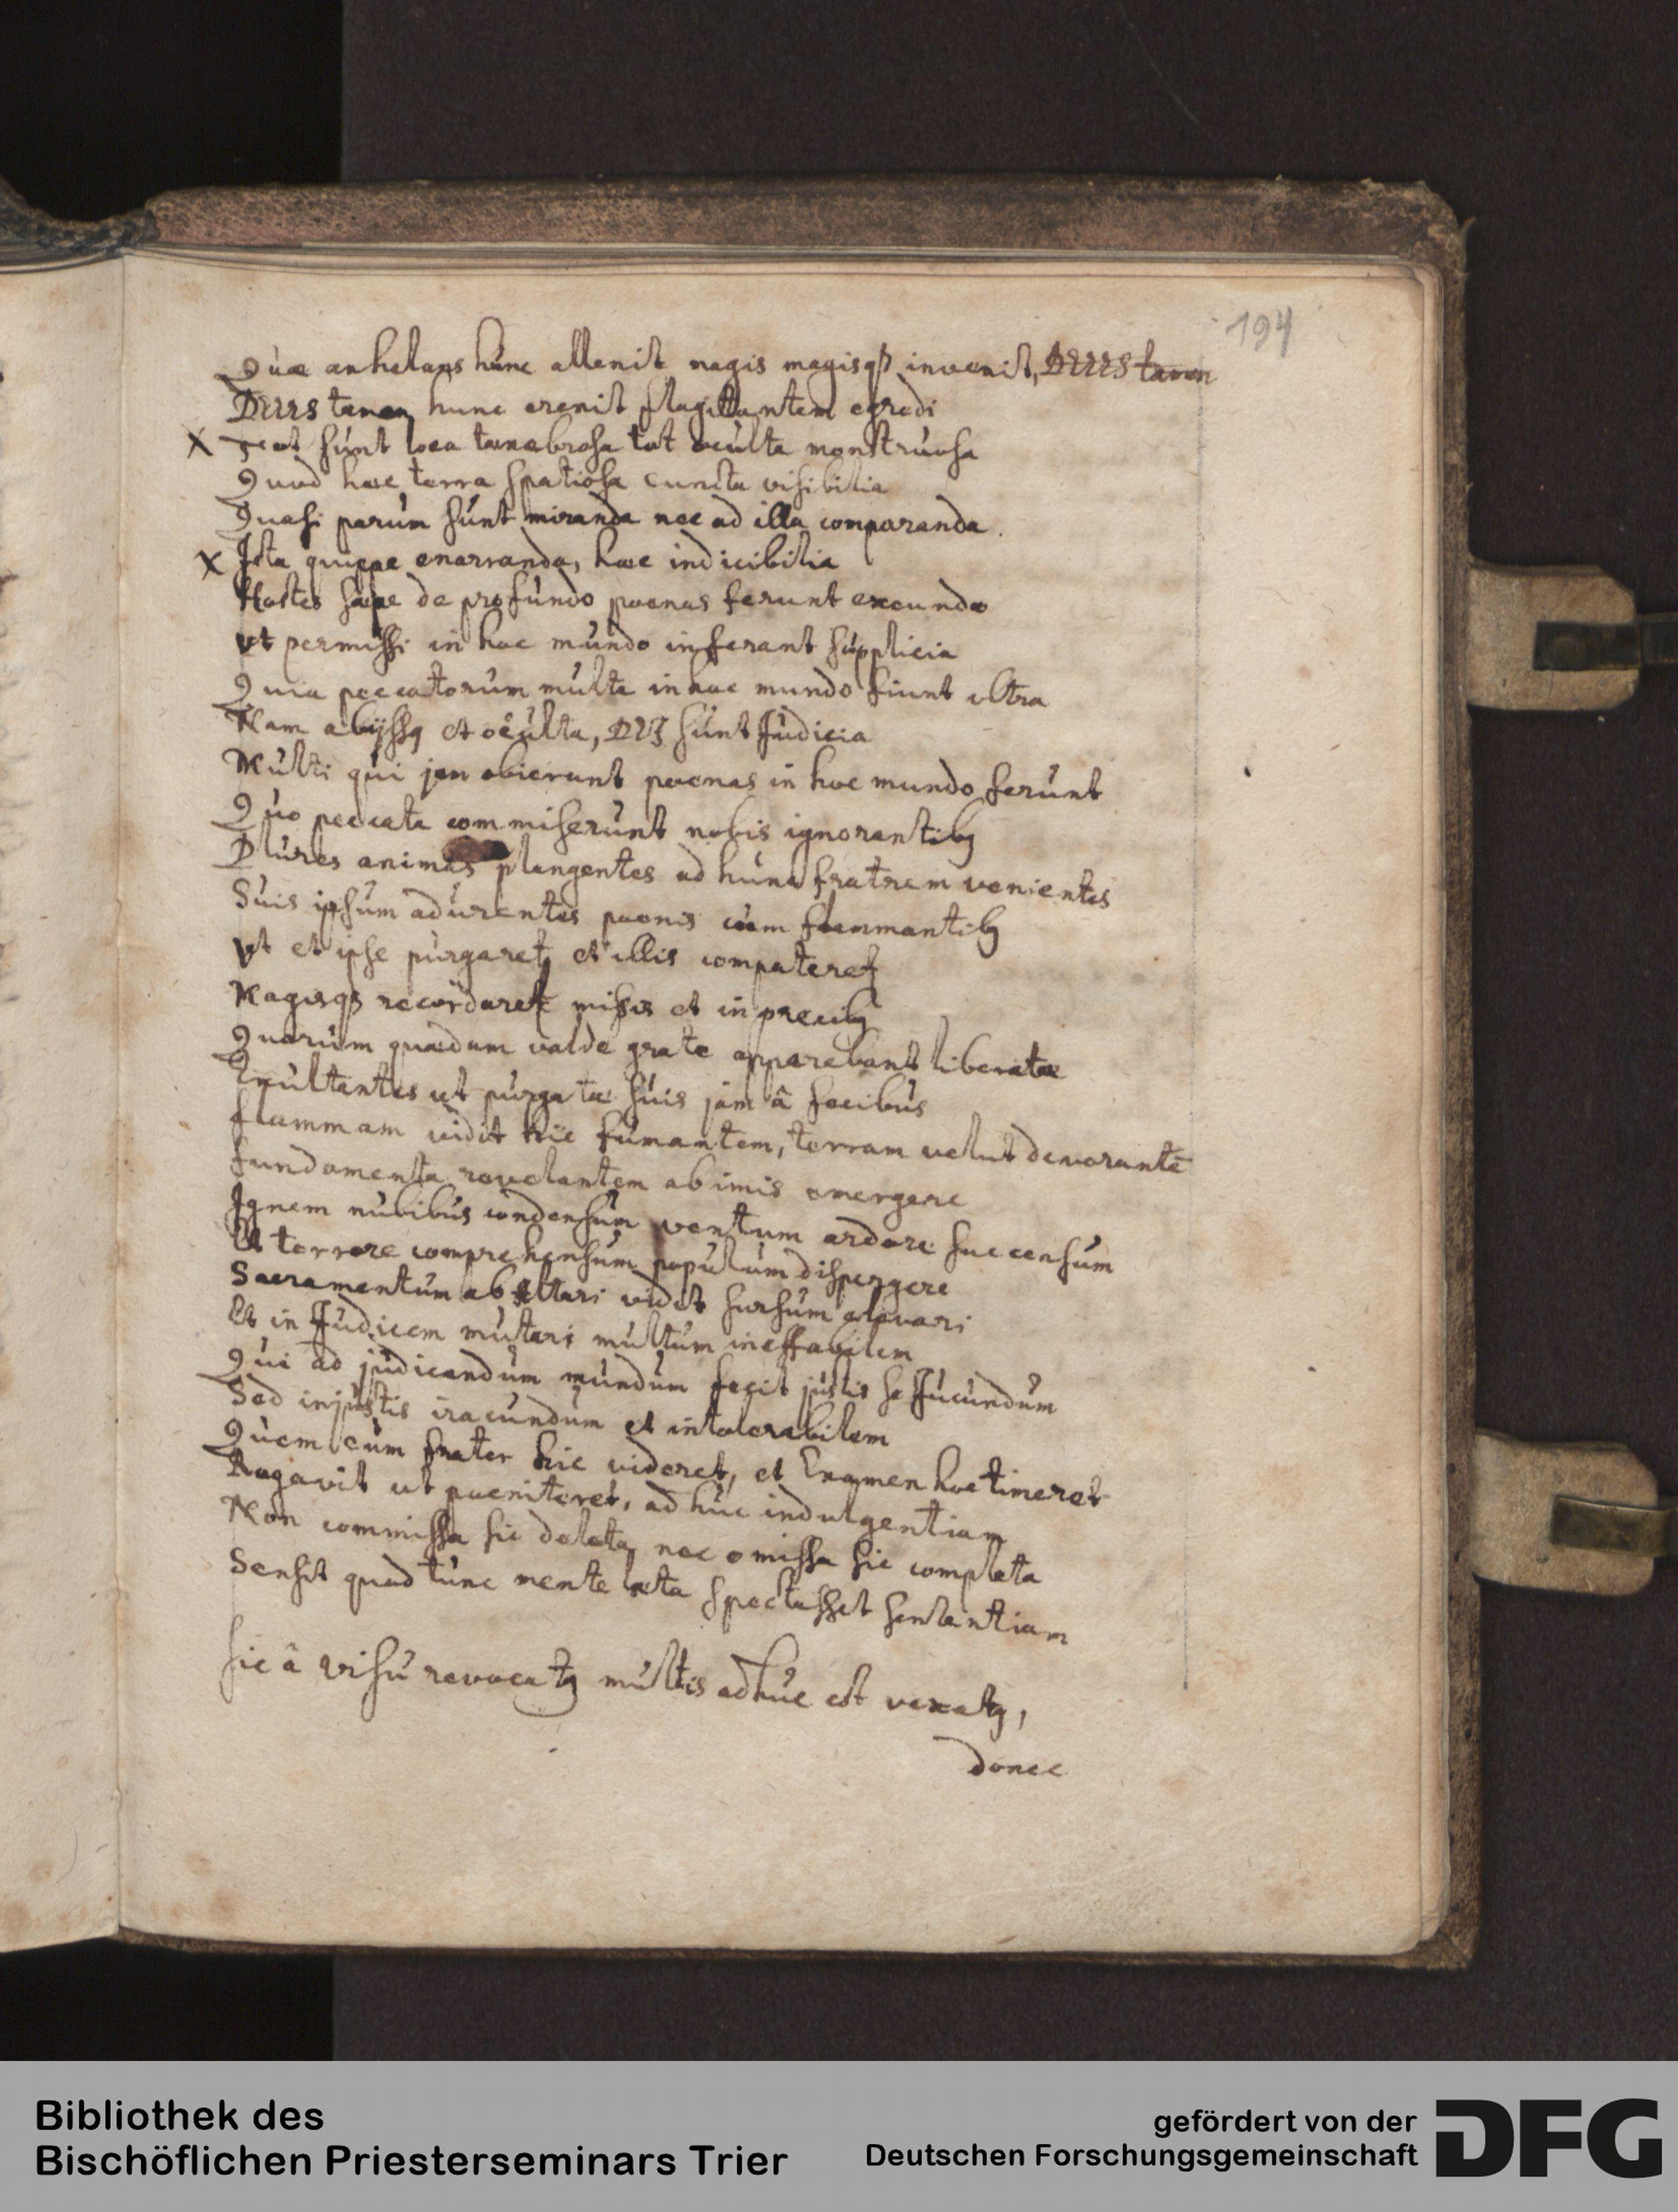 194
Quae anhelans hunc allenit magis magisq; invenit, DEUS tamen
DEUS tamen hunc evenit flagitantem egredi
X Tot sunt loca tenebrosa tot oculta monstruosa
Quod haec terra spatiosa cuncta visibilia
Quasi parum sunt miranda nec ad illa comparanda.
X Ista quippe enarranda, haec indicibilia
Hostes saepe de profundo poenas ferunt exeundo
Vt permissi in hoc mundo inferant supplicia
Quia peccatorum multa in hoc mundo fiunt ultra
Nam abijssq et oculta, DEI sunt Judicia
Multi qui jam obierunt poenas in hoc mundo ferunt
Quo peccata commiserunt nobis ignorantibq
Plures animas plangentes ad hunc fratrem venientes
Suis ipsum adurentes poenis cum flammantibq
Vt et ipse purgaretq et illis compateret
Magisq; recordaret missis et in precibq
Quarum quaedam valde grate apparebant liberatae
Exultantes ut purgatae suis jam â fecibus
flammam vidit hic fumantem, terram velut devorantē
fundamenta revelantem ab imis emergere
Ignem nubibus condensum ventum ardore succensum
Et terrore comprehensum populum dispergere
Sacramentum ab altari videt sursum elevari
Et in Judicem mutari multum ineffabilem
Qui ad judicandum mundum fecit justis se Jucundum
Sed injustis iracundum et intolerabilem
Quem cum frater hic videret, et Examen hoc timeret
Rogavit ut poeniteret, ad huc indulgentiam
Non commissa sic deleta, nec omissa sic completa
Sensit quod tunc mente laeta spectasset sententiam
sic â visu revocatq multis adhuc est vexatq,
donec
Bibliothek des
Bischöflichen Priesterseminars Trier
gefördert von der
Deutschen Forschungsgemeinschaft
DFG